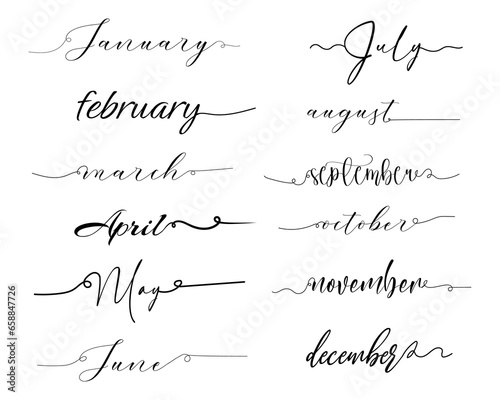 January
february
march
April
May
June
July
august
september
october
november
december
Adobe Stock | #658847726